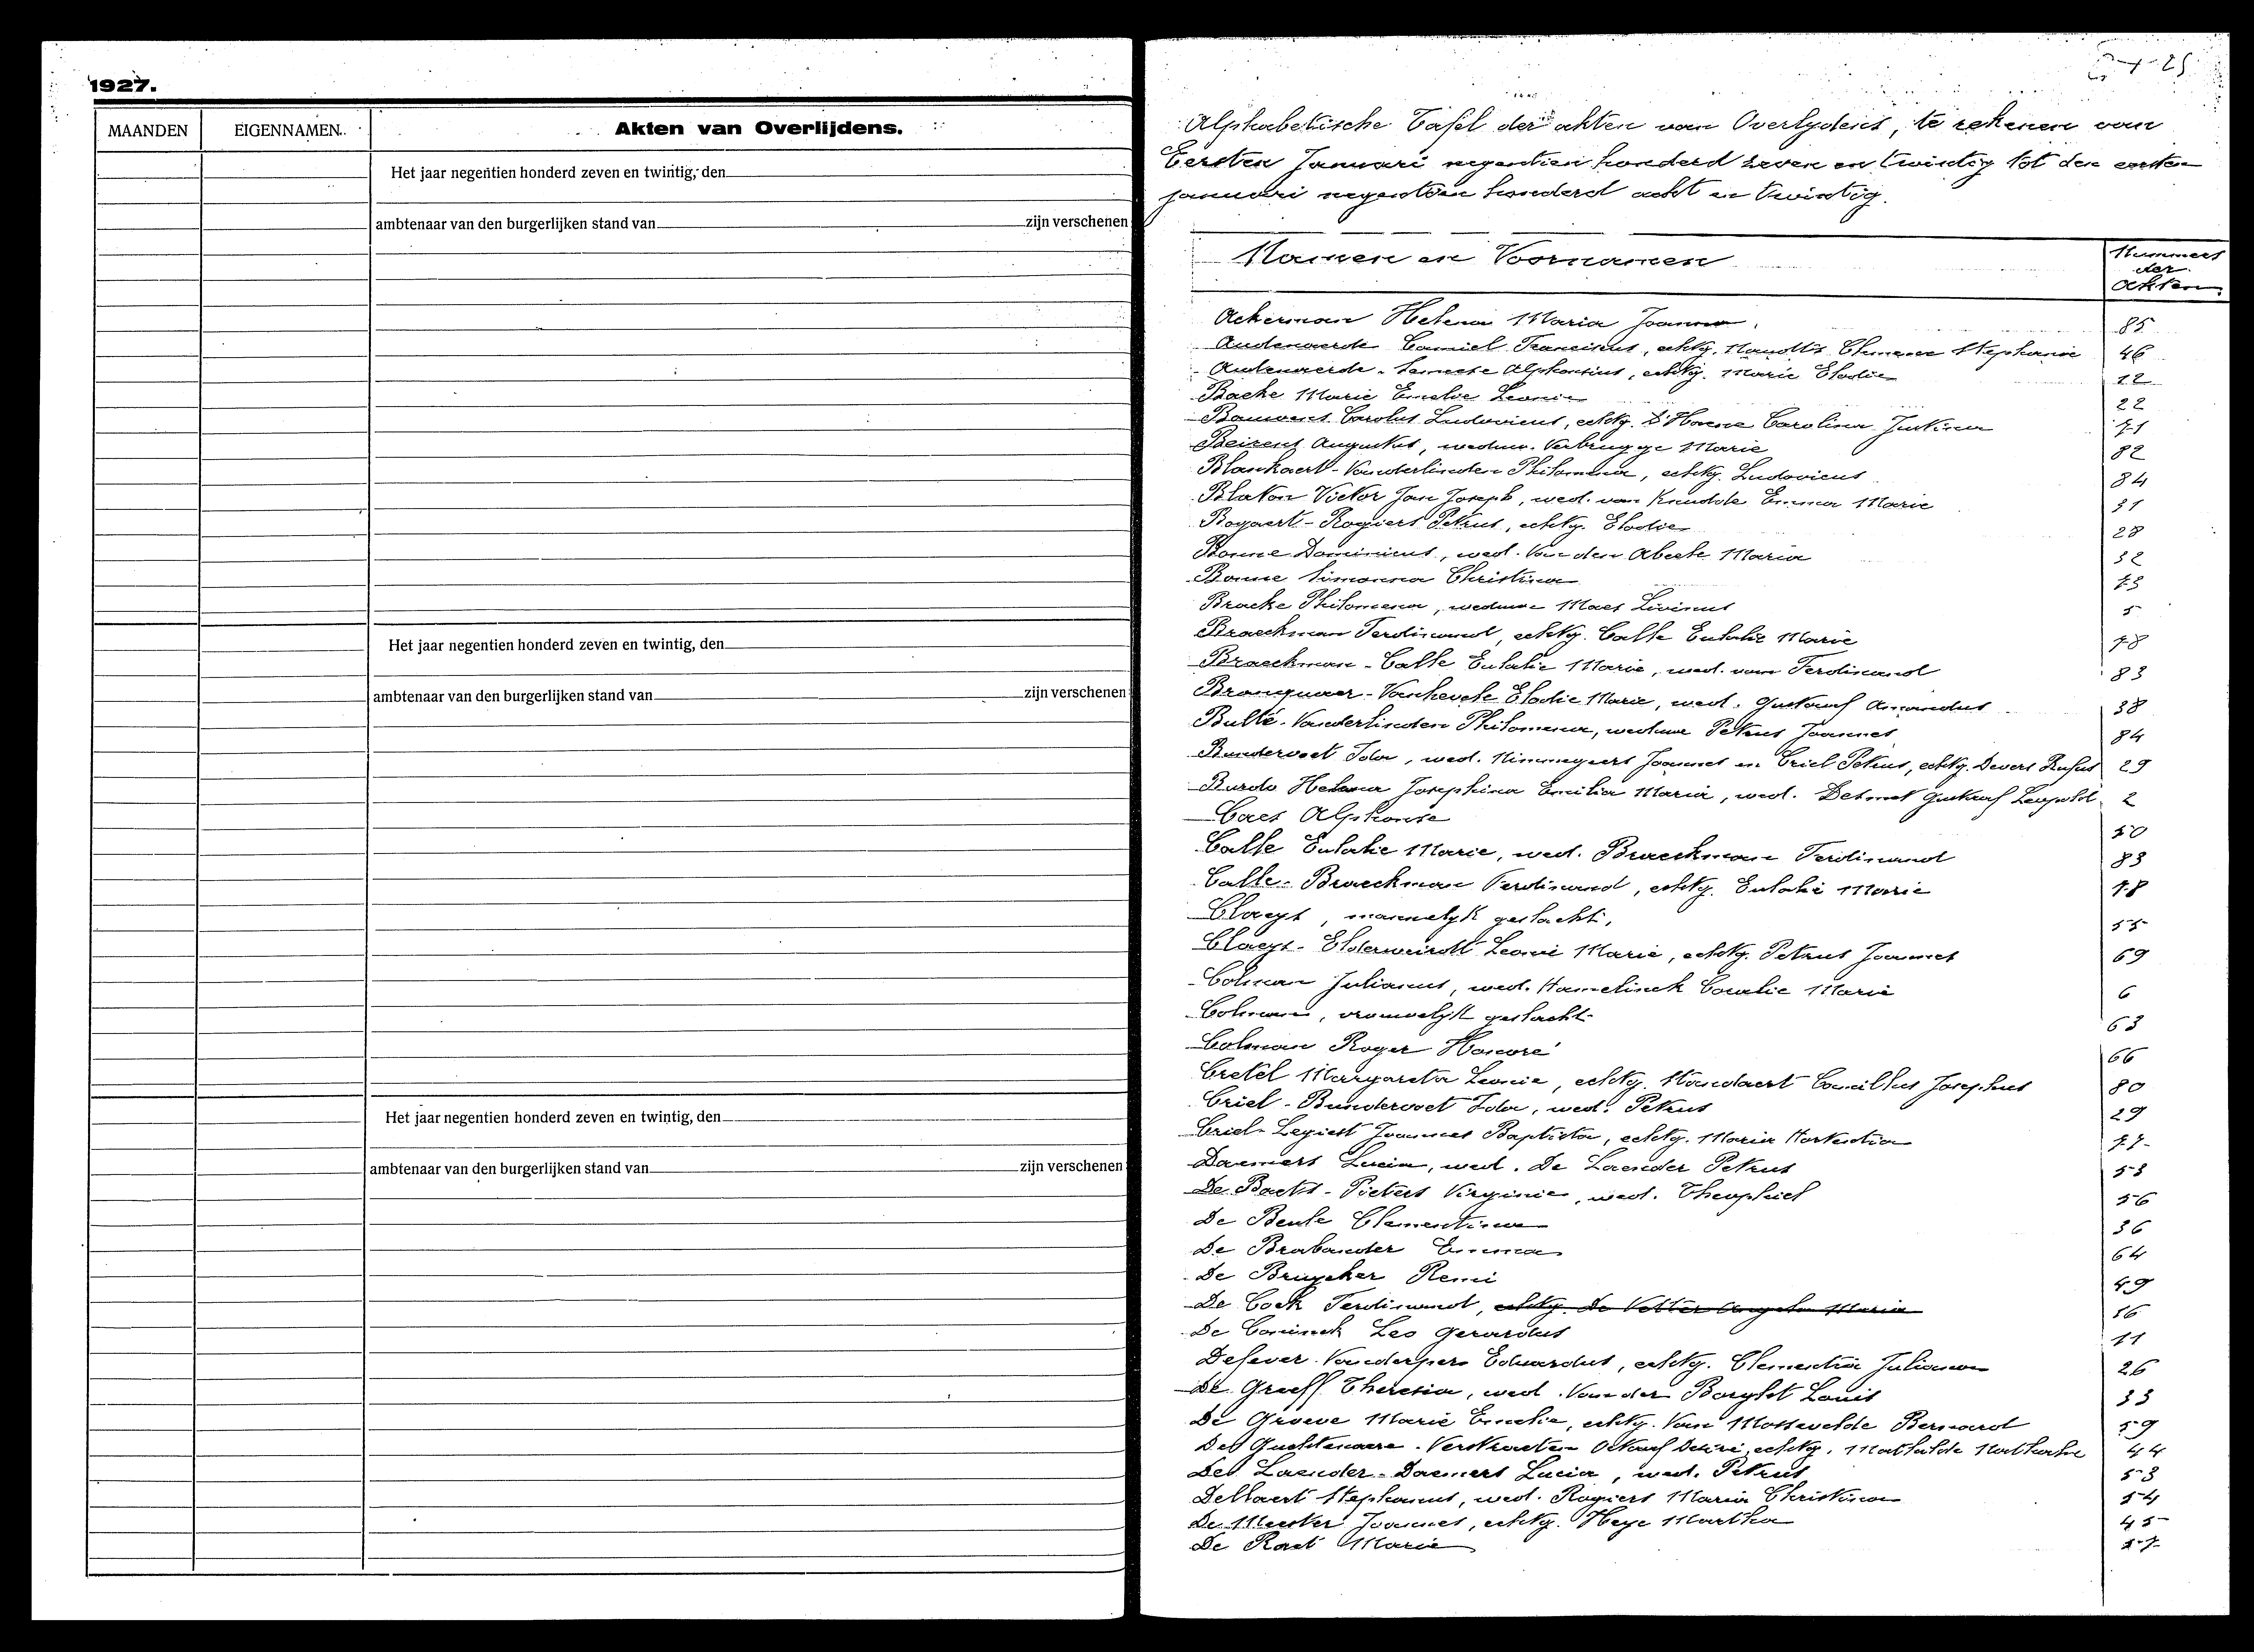 1927.
MAANDEN EIGENNAMEN. Akten van Overlijdens.
Het jaar negentien honderd zeven en twintig, den
ambtenaar van den burgerlijken stand van zijn verschenen
Het jaar negentien honderd zeven en twintig, den
ambtenaar van den burgerlijken stand van zijn verschenen
Het jaar negentien honderd zeven en twintig, den
ambtenaar van den burgerlijken stand van zijn verschenen
Alphabetische Tafel der akten van Overlydens, te rekenen van
Eersten Januari negentien honderd zeven en twintig tot den eersten
januari negentien honderd acht en twintig.
Namen en Voornamen Nummers
der
akten.
Ackerman Helena Maria Joanna. 85
Audenaerde Camiel Franciscus, echtg. Clemence Stephanie 46
Audenaerde - Alphonsius, echtg. Marie Elodie 12
Backe Marie Emelie Leonie 22
Bauwens Carolus Ludovicus, echtg. D'Hoene Carolina Justina 71
Beirens Augustus, weduw. Verbrugge Marie 82
Blankaert - Vanderlinden Philomena, echtg. Ludovicus 84
Blaton Victor Jan Joseph, wed. van Knudde Emma Marie 31
Bogaert - Rogiers Petrus, echtg. Elodie 28
Bonne Dominicus, wed. Van den Abeele Maria 32
Bonne Simonna Christina
Bracke Philomena, weduwe Maes Livinus 5
Braeckman Ferdinand, echtg. Calle Eulalie Marie 78
Braeckman - Calle Eulalie Marie, wed. van Ferdinand 83
Branquaer - Vanhevele Elodie Marie, wed. Gustaaf Amandus 38
Bulté - Vanderlinden Philomena, weduwe Petrus Joannes 84
Bundervoet Ida, wed. Nimmegeers Joannes en Criel Petrus, echtg. Devers Rufus 29
Burdo Helena Josephina Emilia Maria, wed. Desmet Gustaaf Leopold 2
Caes Alphonse
Calle Eulalie Marie, wed. Braeckman Ferdinand 83
Calle - Braeckman Ferdinand, echtg. Eulalie Marie 78
Claeys, mannelyk geslacht. 55
Claeys - Elderweirdt Leonie Marie, echtg. Petrus Joannes 69
Colman Julianus, wed. Hamelinck Coralie Marie 6
Colman, vrouwelyk geslacht 63
Colman Roger Honoré 66
Cretel Margareta Leonie, echtg. Handaert Camillus Josephus 80
Criel - Bundervoet Ida, wed. Petrus 29
Criel - Legiest Joannes Baptista, echtg. Maria Hortentia
Daemers Lucia, wed. De Laender Petrus 53
De Backs - Pieters Virginie, wed. Theophiel 56
De Beule Clementina 36
De Brabander Emma 64
De Bruycker Remi 49
De Cock Ferdinand, echtg. De Vetter Angela Maria 16
De Coninck Leo Gerardus 11
Defever - Vanderpers Eduardus, echtg. Clementia Juliana 26
De Graeff Theresia, wed. Van der Borght Louis 33
De Groeve Marie Emelie, echtg. Van Mossevelde Bernard 59
De Guchtenaere - Verstraeten Octaaf Desiré, echtg. Mathilde Nathalie 44
De Laender - Daemers Lucia, wed. Petrus 53
Dellaert Stephanus, wed. Rogiers Maria Christina 54
De Meester Joannes, echtg. Heye Martha 45
De Raet Marie